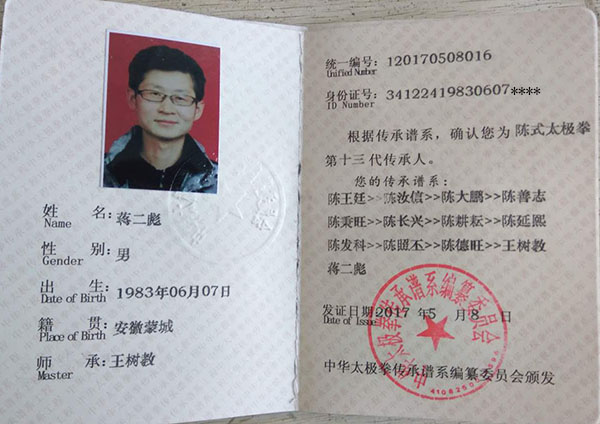 姓 名：蒋二彪
Name
性 别：男
Gender
出 生：1983年06月07日
Date of Birth
籍 贯：安徽蒙城
Place of Birth
师 承：王树教
Master
统一编号：120170508016
Unified Number
身份证号：34122419830607****
ID Number
根据传承谱系，确认您为 陈式太极拳
第十三 代传承人。
您的传承谱系：
陈王廷>>陈汝信>>陈大鹏>>陈善志
陈秉旺>>陈长兴>>陈耕耘>>陈延熙
陈发科>>陈照丕>>陈德旺>>王树教
蒋二彪
发证日期 2017 年 5 月 8 日
Date of Issue
中华太极拳传承谱系编纂委员会
中华太极拳传承谱系编纂委员会颁发